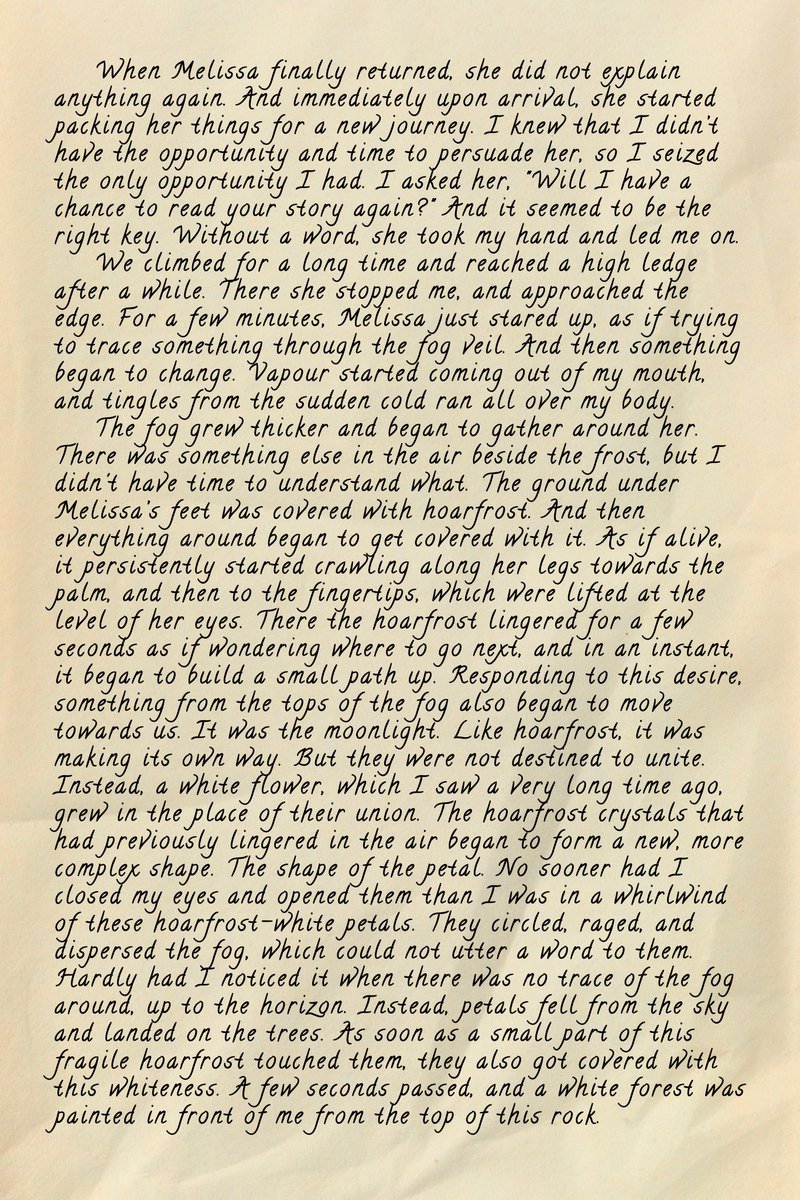 When Melissa finally returned, she did not explain
anything again. And immediately upon arrival, she started
packing her things for a new journey. I knew that I didn't
have the opportunity and time to persuade her, so I seized
the only opportunity I had. I asked her, "Will I have a
chance to read your story again?" And it seemed to be the
right key. Without a word, she took my hand and led me on.
We climbed for a long time and reached a high ledge
after a while. There she stopped me, and approached the
edge. For a few minutes, Melissa just stared up, as if trying
to trace something through the fog veil. And then something
began to change. Vapour started coming out of my mouth,
and tingles from the sudden cold ran all over my body.
The fog grew thicker and began to gather around her.
There was something else in the air beside the frost, but I
didn't have time to understand what. The ground under
Melissa's feet was covered with hoarfrost. And then
everything around began to get covered with it. As if alive,
it persistently started crawling along her legs towards the
palm, and then to the fingertips, which were lifted at the
level of her eyes. There the hoarfrost lingered for a few
seconds as if wondering where to go next, and in an instant,
it began to build a small path up. Responding to this desire,
something from the tops of the fog also began to move
towards us. It was the moonlight. Like hoarfrost, it was
making its own way. But they were not destined to unite.
Instead, a white flower, which I saw a very long time ago,
grew in the place of their union. The hoarfrost crystals that
had previously lingered in the air began to form a new, more
complex shape. The shape of the petal. No sooner had I
closed my eyes and opened them than I was in a whirlwind
of these hoarfrost-white petals. They circled, raged, and
dispersed the fog, which could not utter a word to them.
Hardly had I noticed it when there was no trace of the fog
around, up to the horizon. Instead, petals fell from the sky
and landed on the trees. As soon as a small part of this
fragile hoarfrost touched them, they also got covered with
this whiteness. A few seconds passed, and a white forest was
painted in front of me from the top of this rock.